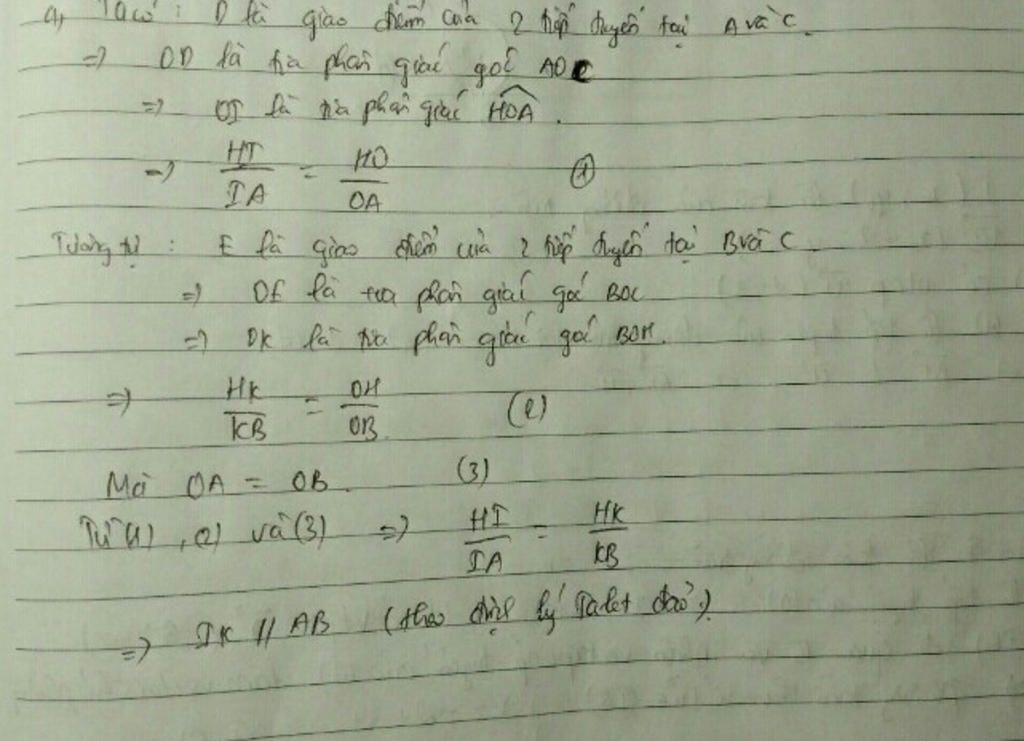 a, Ta có : D là giao điểm của 2 tiếp tuyến tại A và C.
=> OD là tia phân giác góc AOC
=> OI là tia phân giác HOA .
=> HI/IA = HO/OA (1)
Tương tự : E là giao điểm của 2 tiếp tuyến tại B và C
=> OE là tia phân giác góc BOC
=> OK là tia phân giác góc BOH.
=> HK/KB = OH/OB (2)
Mà OA = OB. (3)
Từ (1) , (2) và (3) => HI/IA = HK/KB
=> IK // AB (theo định lý Talet đảo)